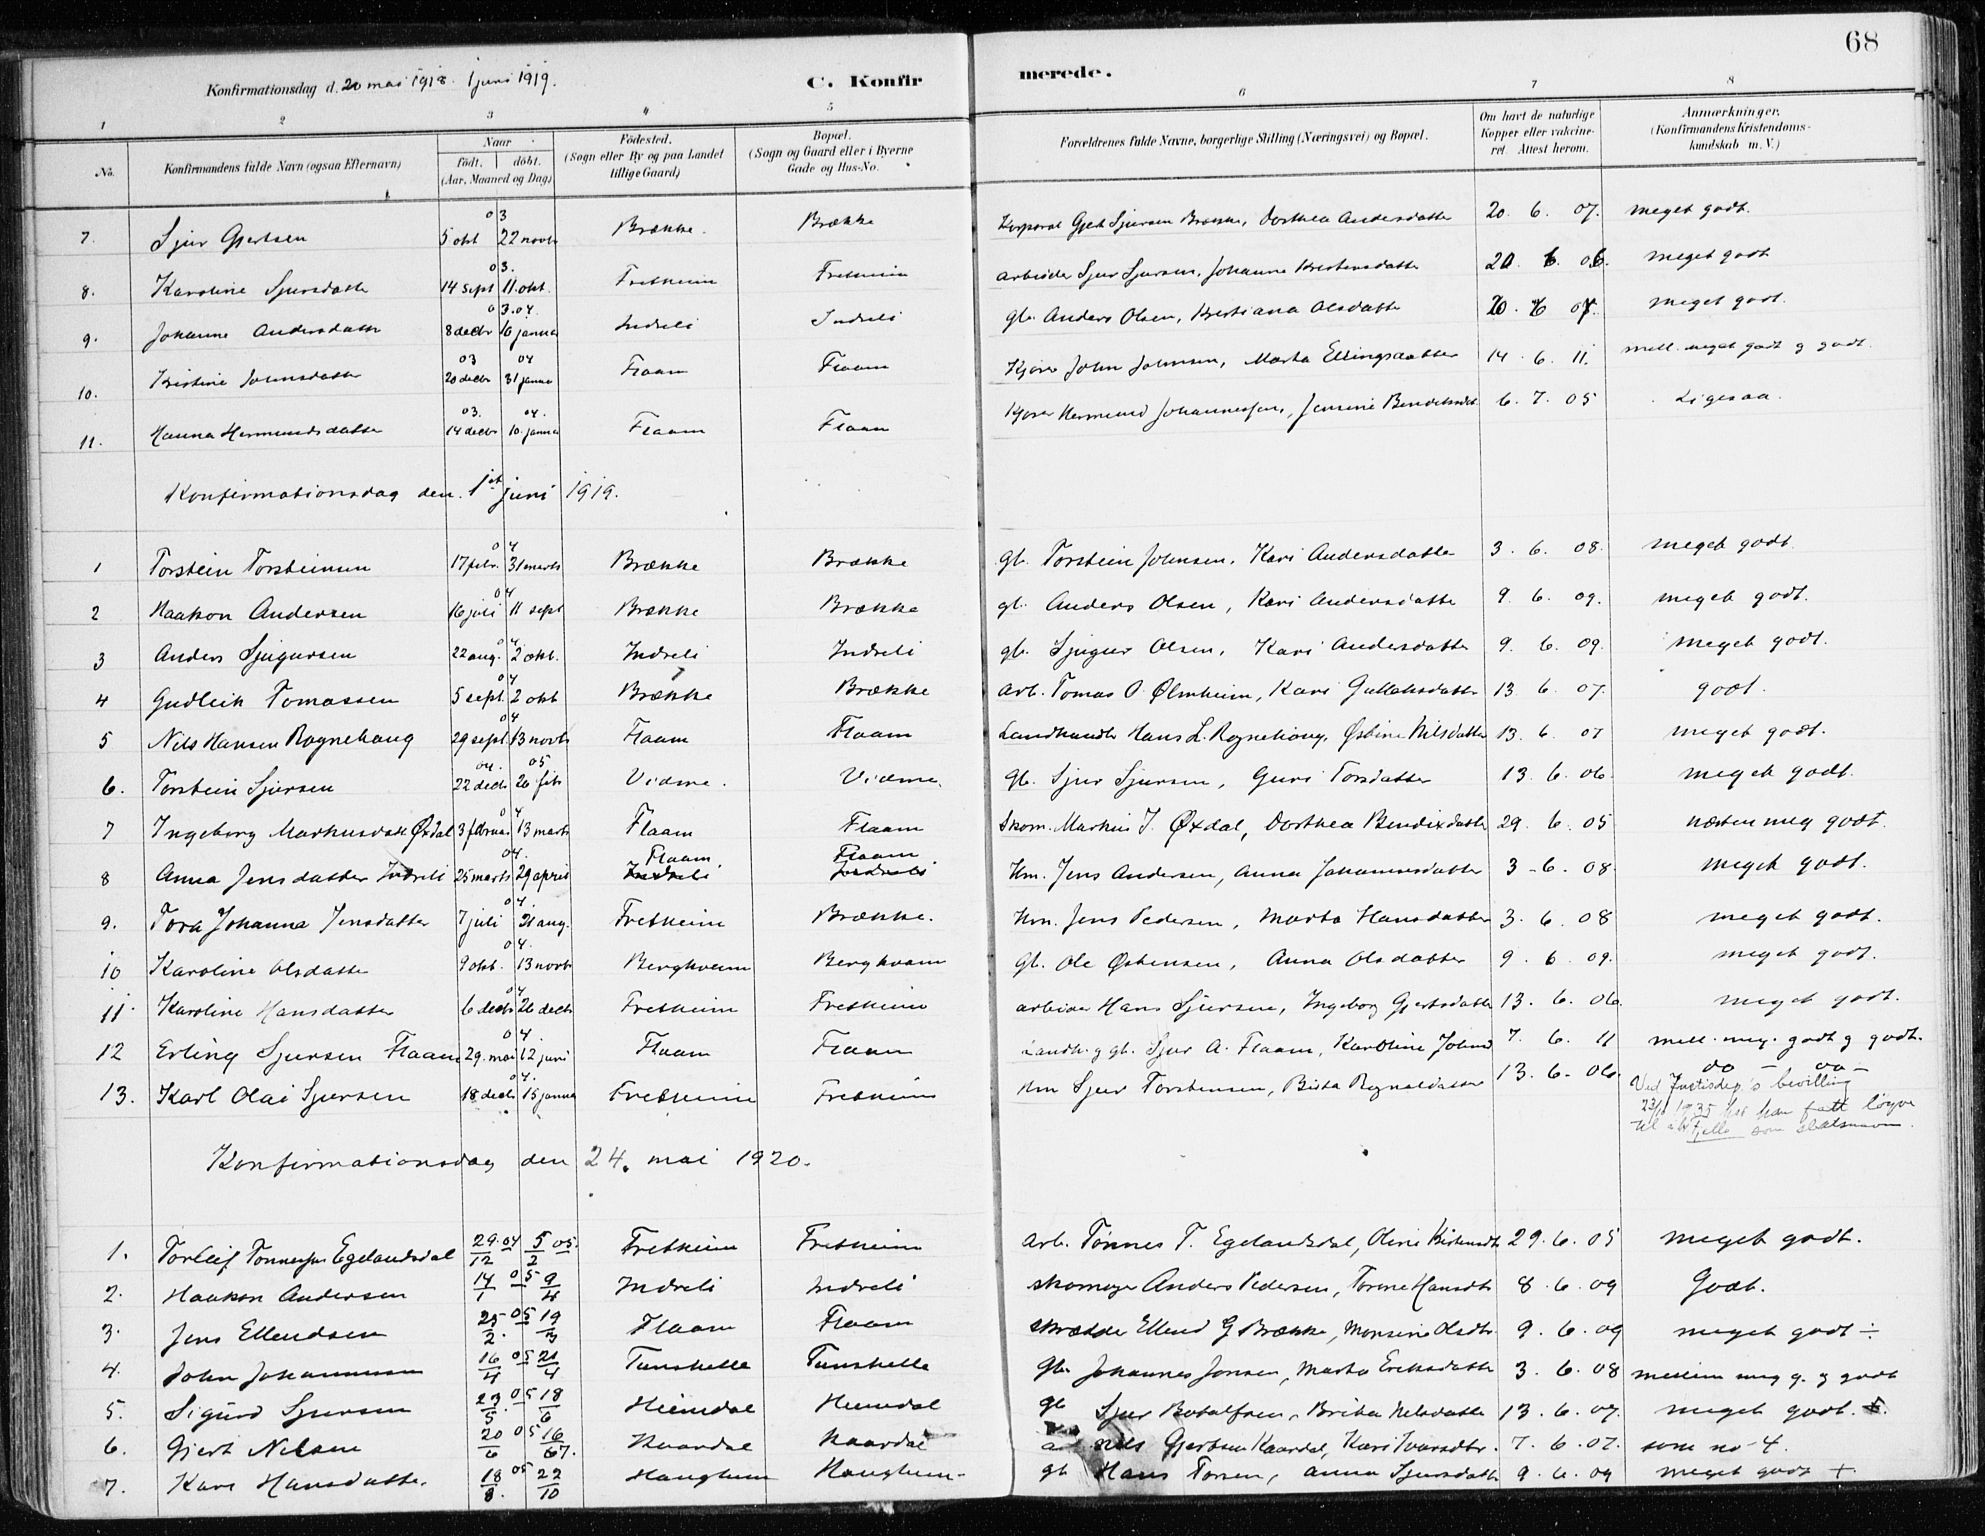 68
Konfirmationsdag d. 20 mai 1918. 1 juni 1919.
C. Konfirmerede.
1 2 3 4 5 6 7 8
No. Konfirmandens fulde Navn (ogsaa Efternavn) Naar født. døbt. (Aar, Maaned og Dag) Fødested. (Sogn eller By og paa Landet tillige Gaard) Bopæl. (Sogn og Gaard eller i Byerne Gade og Hus-No. Forældrenes fulde Navne, borgerlige Stilling (Næringsvei) og Bopæl. Om havt de naturlige Kopper eller vakcineret. Attest herom. Anmærkninger. (Konfirmandens Kristendomskundskab m. V.)
7. Sjur Gjertsen 03 5 okt 22 novb Brække. Brække Korporal Gjert Sjursen Brække, Dorthea Andersdatter 20. 6. 07. meget godt.
8. Karoline Sjursdatter 03. 14 sept 11 okt. Fretheim Fretheim arbeider Sjur Sjursen, Johanna Kristensdatter 20. 6. 06. meget godt
9. Johanne Andersdatter 03.04. 8 decbr 10 januar Indreli Indreli gb. Anders Olsen, Kristiana Olsdatter 20. 6 07. meget godt.
10. Kristine Johnsdatter 03 04 20 decbr 31 januar Flaam Flaam Kjører John Johnsen, Marta Ellingsdatter 14. 6. 11. mell. meget godt g godt.
11. Hanna Hermundsdatter 03. 04. 14 decbr 10. januar Flaam Flaam Kjører Hermund Johannessen, Jensine Bendiksdt. 6. 7. 05 Ligesaa.
Konfirmationsdag den. 1st juni 1919.
1 Torstein Torsteinsen 04 17 febr. 31 marts Brække Brække gb. Torstein Johnsen, Kari Andersdatter 3. 6. 08. meget godt.
2 Haakon Andersen 04 16 juli 11 sept Brække Brække gb. Anders Olsen, Kari Andersdatter 9. 6. 09. meget godt.
3 Anders Sjugursen 04 22 aug. 2 okt. Indreli Indreli gb. Sjugur Olsen, Kari Andersdatter 9. 6. 09. meget godt.
4 Gudleik Tomassen 04 5 sept. 2 okt Brække Brække Arb. Tomas O. Ølmheim, Kari Gullaksdatter 13. 6. 07. godt.
5 Nils Hansen Rognehaug 04 29 sept. 13 novb Flaam Flaam Landhandl. Hans L. Rognehaug, Østine Nilsdatter 13. 6. 07 meget godt.
6. Torstein Sjursen 04. 05 22 decb 26 feb Vidme. Vidme. gb. Sjur Sjursen, Guri Torsdatter 13. 6. 06. meget godt.
7 Ingeborg Markusdatt Øxdal 04 3 februar 13 marts Flaam Flaam Skom. Markus I. Øxdal, Dorthea Bendixdatter 29. 6. 05 næsten meg godt.
8 Anna Jensdatter Indreli 04. 25 marts 29 april Flaam. Indreli Flaam Indreli Hm. Jens Andersen, Anna Johannesdatter 3-6. 08. meget godt.
9. Tora Johanna Jensdatter 04. 7 juli 21 aug. Fretheim Brække. Hm. Jens Pedersen, Marta Hansdatter 3. 6. 08 meget godt.
10 Karoline Olsdatter 04. 9 okt. 13 novb Berghveim Berghvam Gb. Ole Østensen, Anna Olsdatter 9. 6. 09. meget godt.
11. Karoline Hansdatter 04 6 decb 26 decb Fretheim Fretheim arbeider Hans Sjursen, Ingeborg Gjertsdatter 13. 6. 06. meget godt.
12 Erling Sjursen Flaam 04. 29. mai 12 juni Flaam Flaam Landh. g gb. Sjur A. Flaam, Karoline Johnsd 7. 6. 11 mell. meg. godt g godt.
13. Karl Olai Sjursen 04. 18 decb 15 januar Fretheim Fretheim Hm Sjur Torstensen, Brita Rognaldsdatter 13. 6. 06. do – do –
Ved Justisdep's bevilling
1935 har han fått løyve
til å ha Fjelle som slektsnavn.
Konfirmationsdag den 24. mai 1920.
1. Torleif Tønnessen Egelandsdal 29/12 04 5/2 05. Fretheim Fretheim Arb. Tønnes T. Egelandsdal, Oline 29. 6. 05 meget godt.
2. Haakon Andersen 14/1 05 9/4 Indreli Indreli skomager Anders Pedersen, Torine Hansdtr 8. 6. 09 Godt.
3. Jens Ellendsen 25/2. 05 19/3 Flaam Flaam skrædder Ellend G Brække, Monsine Olsdtr. 9. 6. 09 meget godt ÷
4. John Johannessen 16/4 05 21/4 Tunshelle Tunshelle Gb. Johannes Jonsen, Marta Eriksdatter 3. 6. 08 mellem meg g. g godt
5. Sigurd Sjursen 23/5. 05 18/6 Heimdal Heimdal gb Sjur Botolfsen, Brita Nilsdatter 13. 6. 07. meget godt.
6. Gjert Nilsen 20/6 05 16/67. Kaardal Kaardal Nils Gjertsen Kaardal, Kari Ivarsdtr. 7. 6. 07. som no 4.
7. Kari Hansdatter. 18/8. 05 22/10 Haugheim Haugheim- gb Hans Torsen, Anna Sjursdatter 9. 6. 09 meget godt +